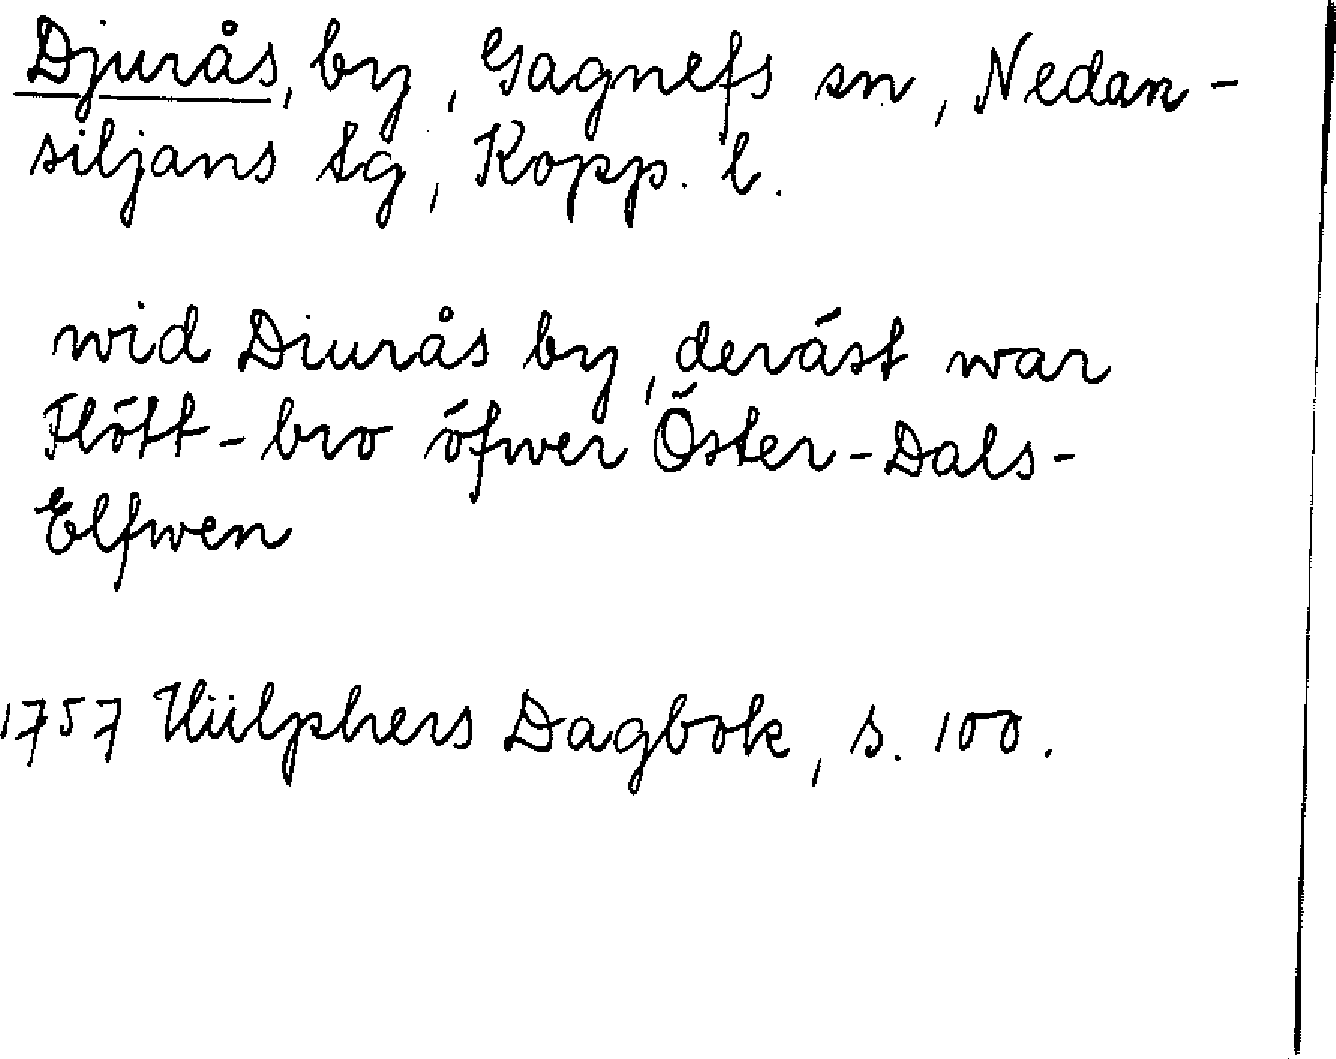 Djurås, by, Gagnefs sn, Nedan-
siljans tg, Kopp. l.
wid Diurås by, derást war
Flótt-bro ófwer Öster-Dals-
Elfwen
1757 Hülphers Dagbok, s. 100.